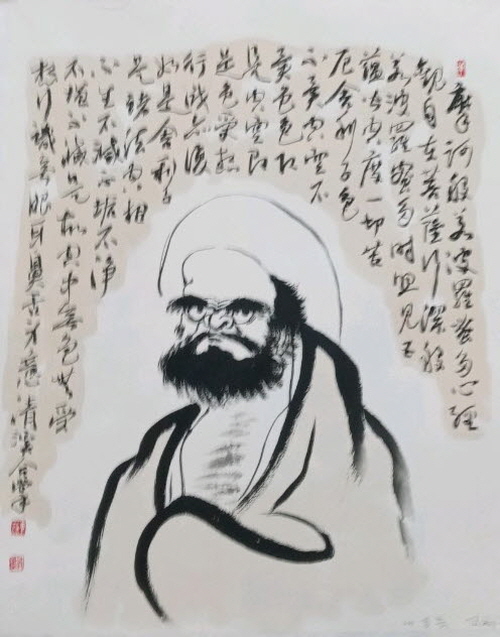 摩訶般若波羅蜜多心經
觀自在菩薩行深般
若波羅蜜多時照見五
蘊皆空度一切苦
厄舍利子色
不異空空不
異色色即
是空空即
是色受想
行識亦復
如是舍利子
是諸法空相
不生不滅不垢不淨
不增不減是故空中無色無受
想行識無眼耳鼻舌身意清溪合掌